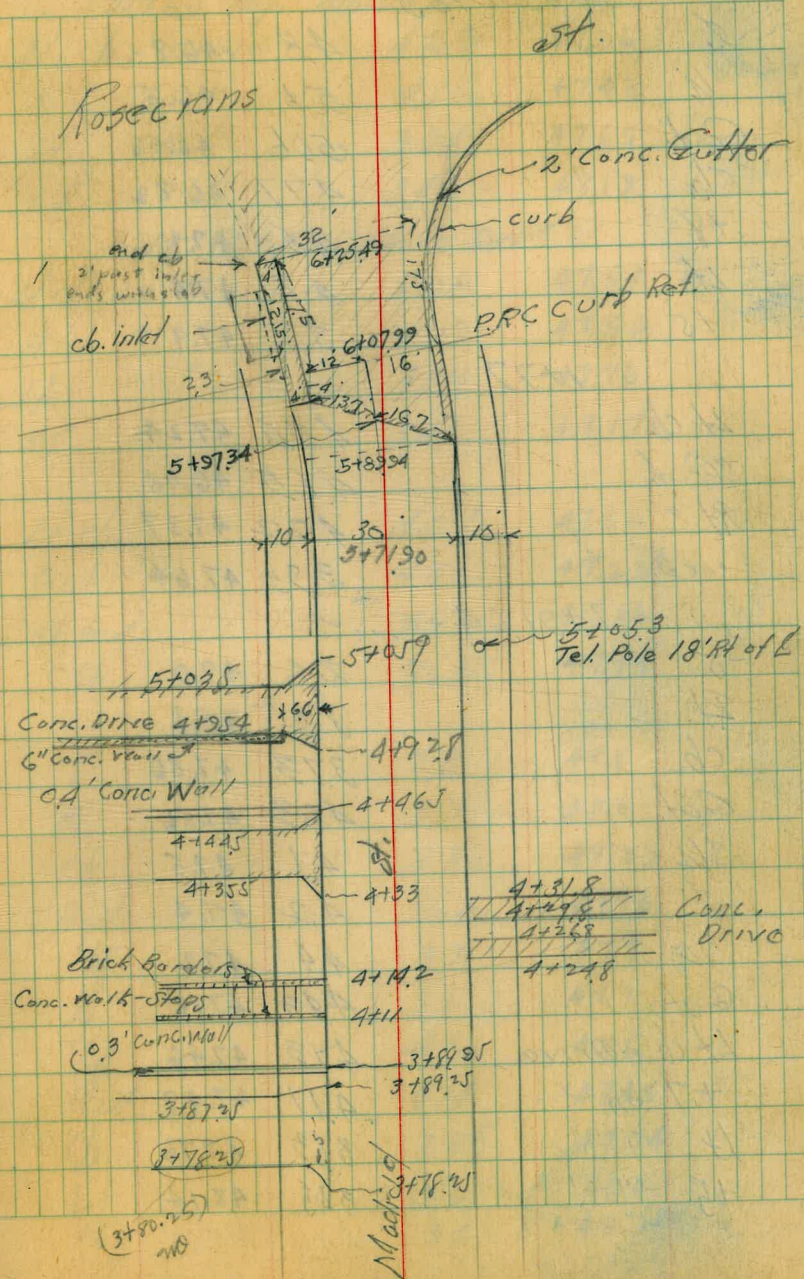 St.
Rosecrans
2' Conc. Gutter
curb
32'
6+25.49
end cb
2' past inlet
ends with slab
1
4
17.5
17.5
12.15
cb. inlet
P.R.C Curb Ret.
6+07.99
12
16
2.3
4
4
13.7
16.7
5+97.34
5+89.94
10
30
10
5+71.90
5+05.3
Tel. Pole 18' Rt of ℄
5+05.9
5+03.5
6.6
Conc. Drive 4+95.4
6" Conc. Wall
4+92.8
0.4' Conc. Wall
4+46.5
4+44.5
St.
4+35.5
4+33
4+31.8
4+29.8
4+26.8
4+24.8
Conc.
Drive
Brick Borders
4+14.2
Conc. Walk-Steps
4+11
0.3' Conc. Wall
3+89.95
3+89.25
3+87.25
3+78.25
5
3+78.25
Madrid
(3+80.25)
no